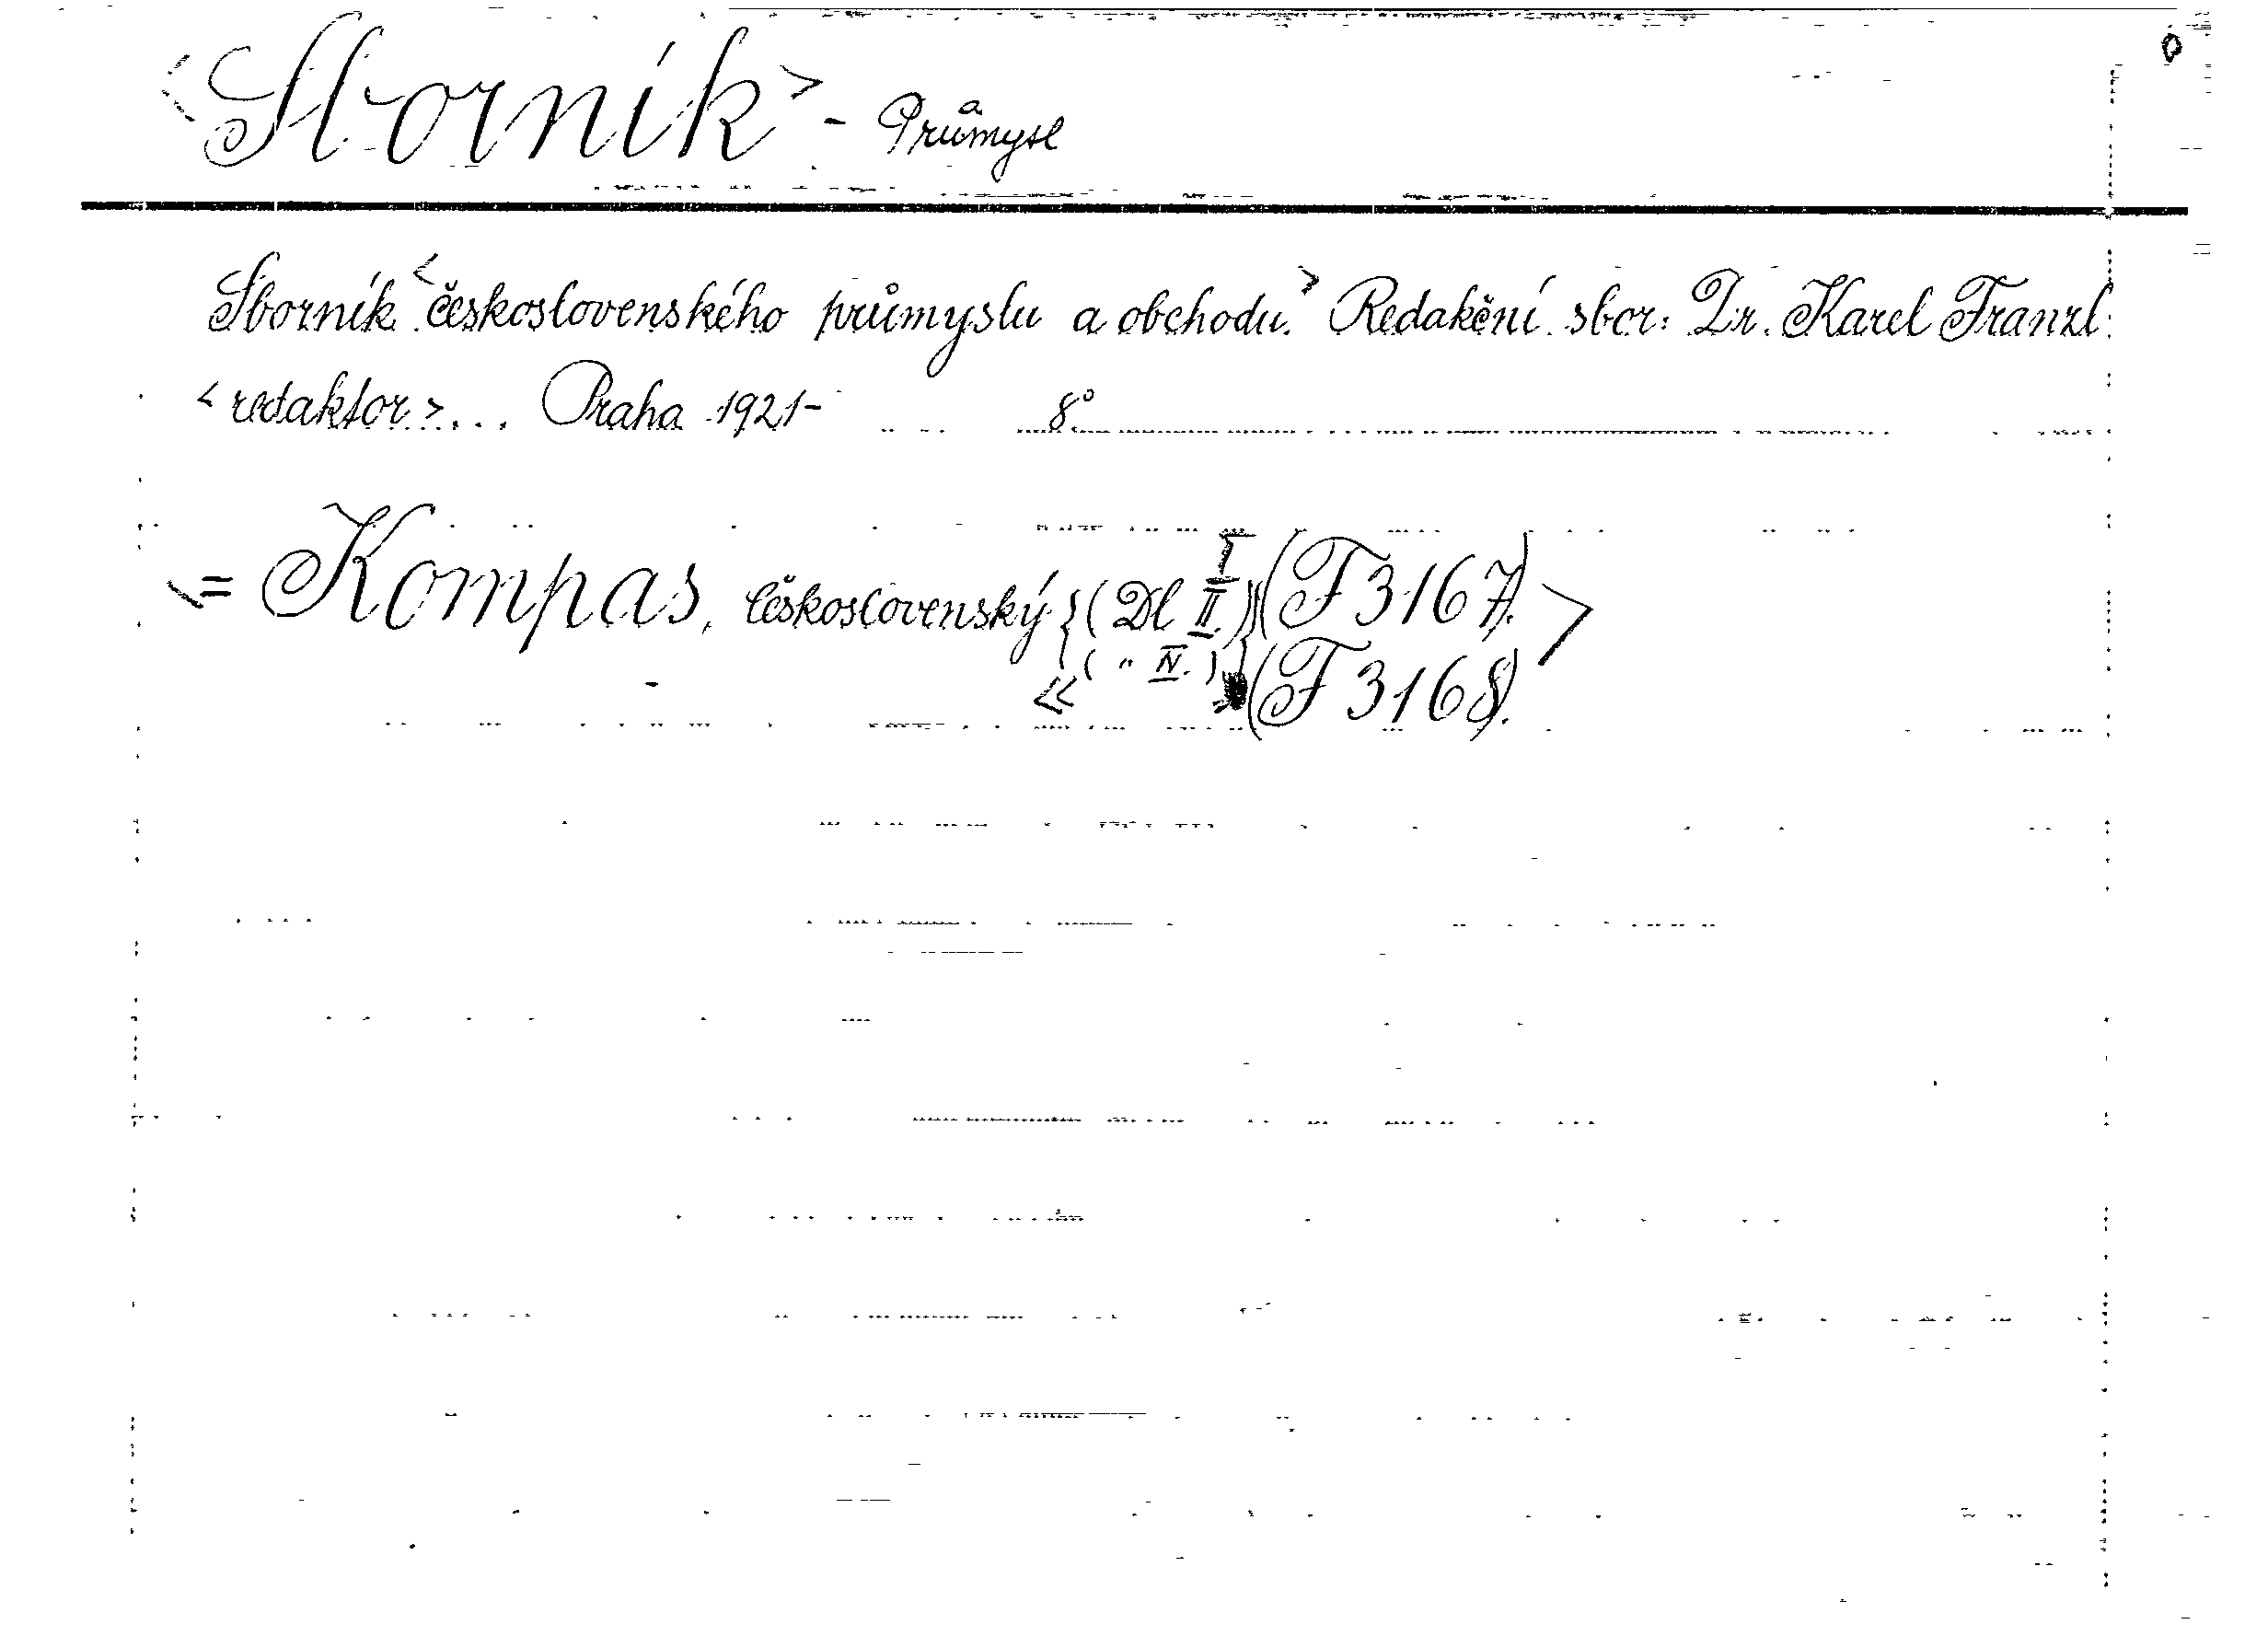 <Sborník> - Průmysl a
Sborník <československého průmyslu a obchodu.> Redakční sbor: Dr. Karel Franzl
<redaktor>... Praha 1921- 8°
<= Kompas, československý {(Dl I II.)} (F 3167). >
<< ( " IV. ) (F 3168).